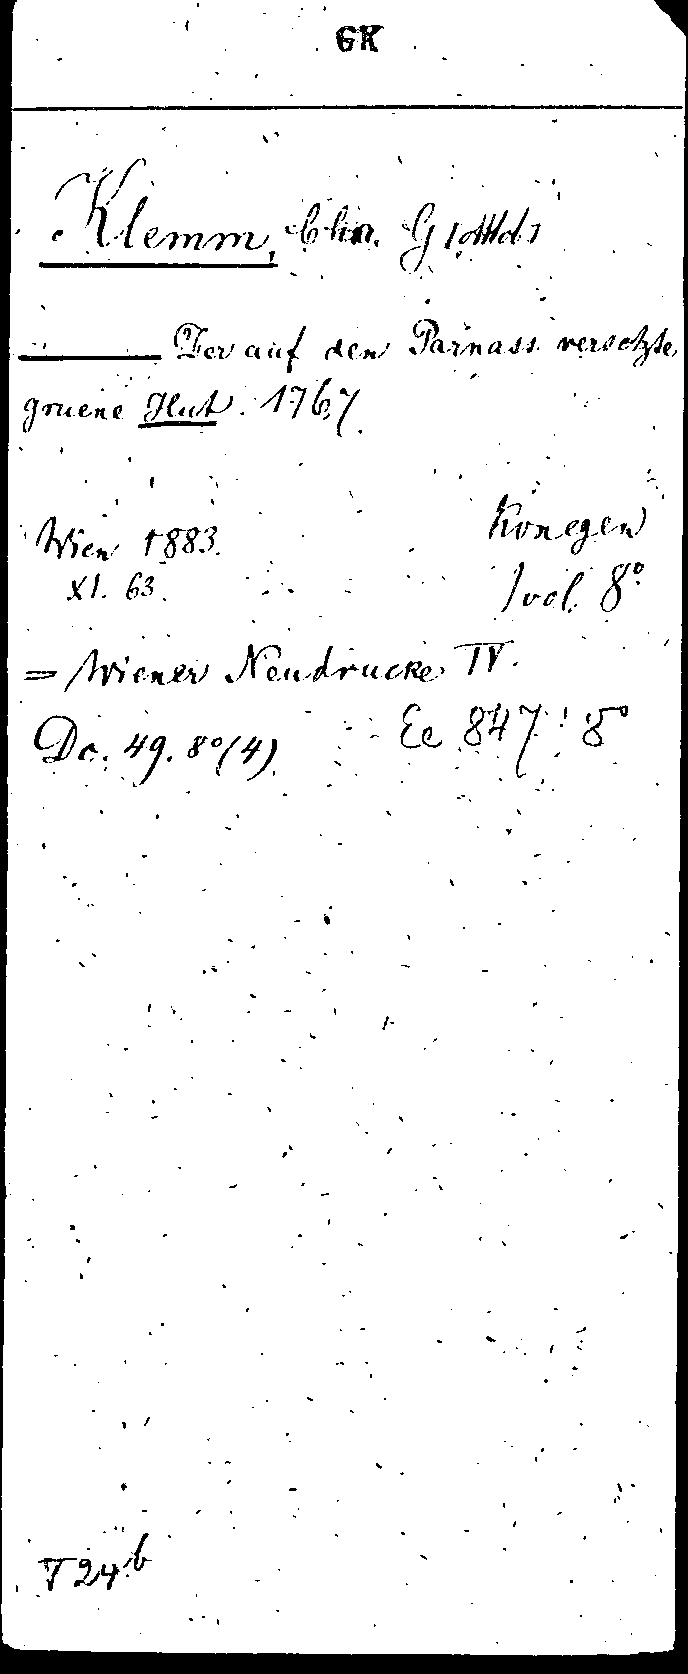 GK
Klemm, Chr.
Der auf den Parnass versetzte
gruene Hut. 1767.
Wien 1883. Konegen
XI. 63. 1 vol. 8°
= Wiener Neudrucke IV.
Dc. 49. 8° (4) Ee 847 : 8°
T 24b